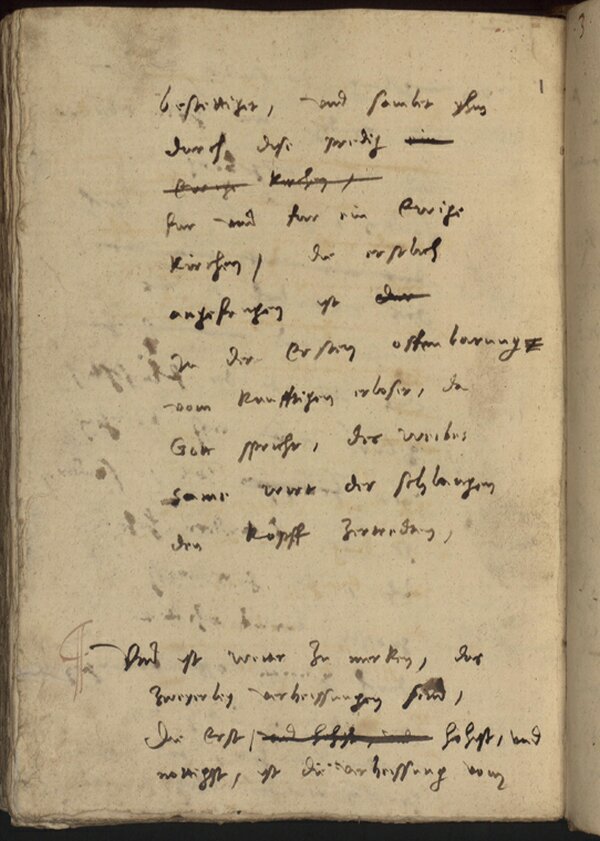 bestettiget, und samlet yhm
durch dise predig ein
Ewige Kirchen,
fur und fur ein Ewige
Kirchen, die erstlich
angefangen ist der
In der Ersten offenbarung
vom Kunfftigen erloser, da
Gott spricht, des weibes
Same wirt der schlangen
den Kopff Zertretten,
Und ist weiter Zu merken, das
Zweyerley verheissungen sind,
Die Erst, und hohist, und hohist, und
notigist, ist die verheissung vom
3